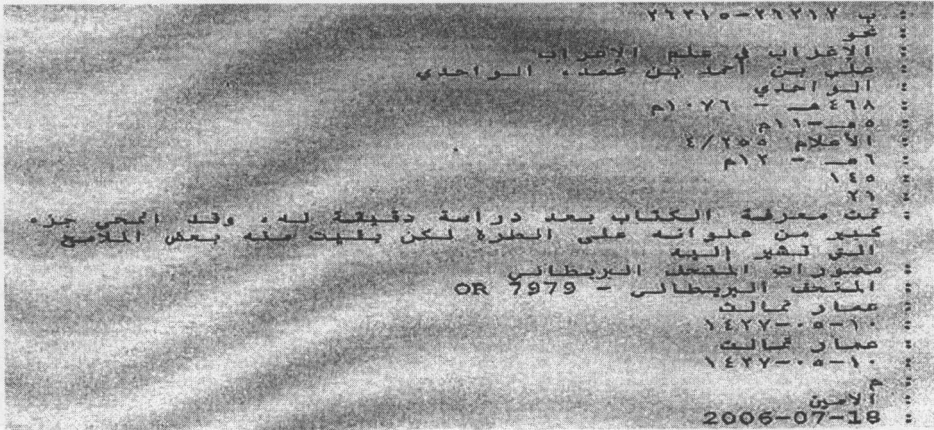 : ب ٢٦٢١٧-٢٦٣١٥
: نحو
: الإغراب في علم الإعراب
: علي بن أحمد بن محمد، الواحدي
: الواحدي
: ٤٦٨هـ - ١٠٧٦م
: ٥هـ-١١م
: الأعلام ٤/٢٥٥
: ٦هـ - ١٢م
: ١٤٥
: ٢١
: تمت معرفة الكتاب بعد دراسة دقيقة له، وقد انمحى جزء
كبير من عنوانه على الطرة لكن بقيت منه بعض الملامح
التي تشير إليه
: مصورات المتحف البريطاني
: المتحف البريطاني - OR 7979
: عمار تمالت
: ١٤٢٧-٠٥-١٠
: عمار تمالت
: ١٤٢٧-٠٥-١٠
: م
: الأمين
: 2006-07-18